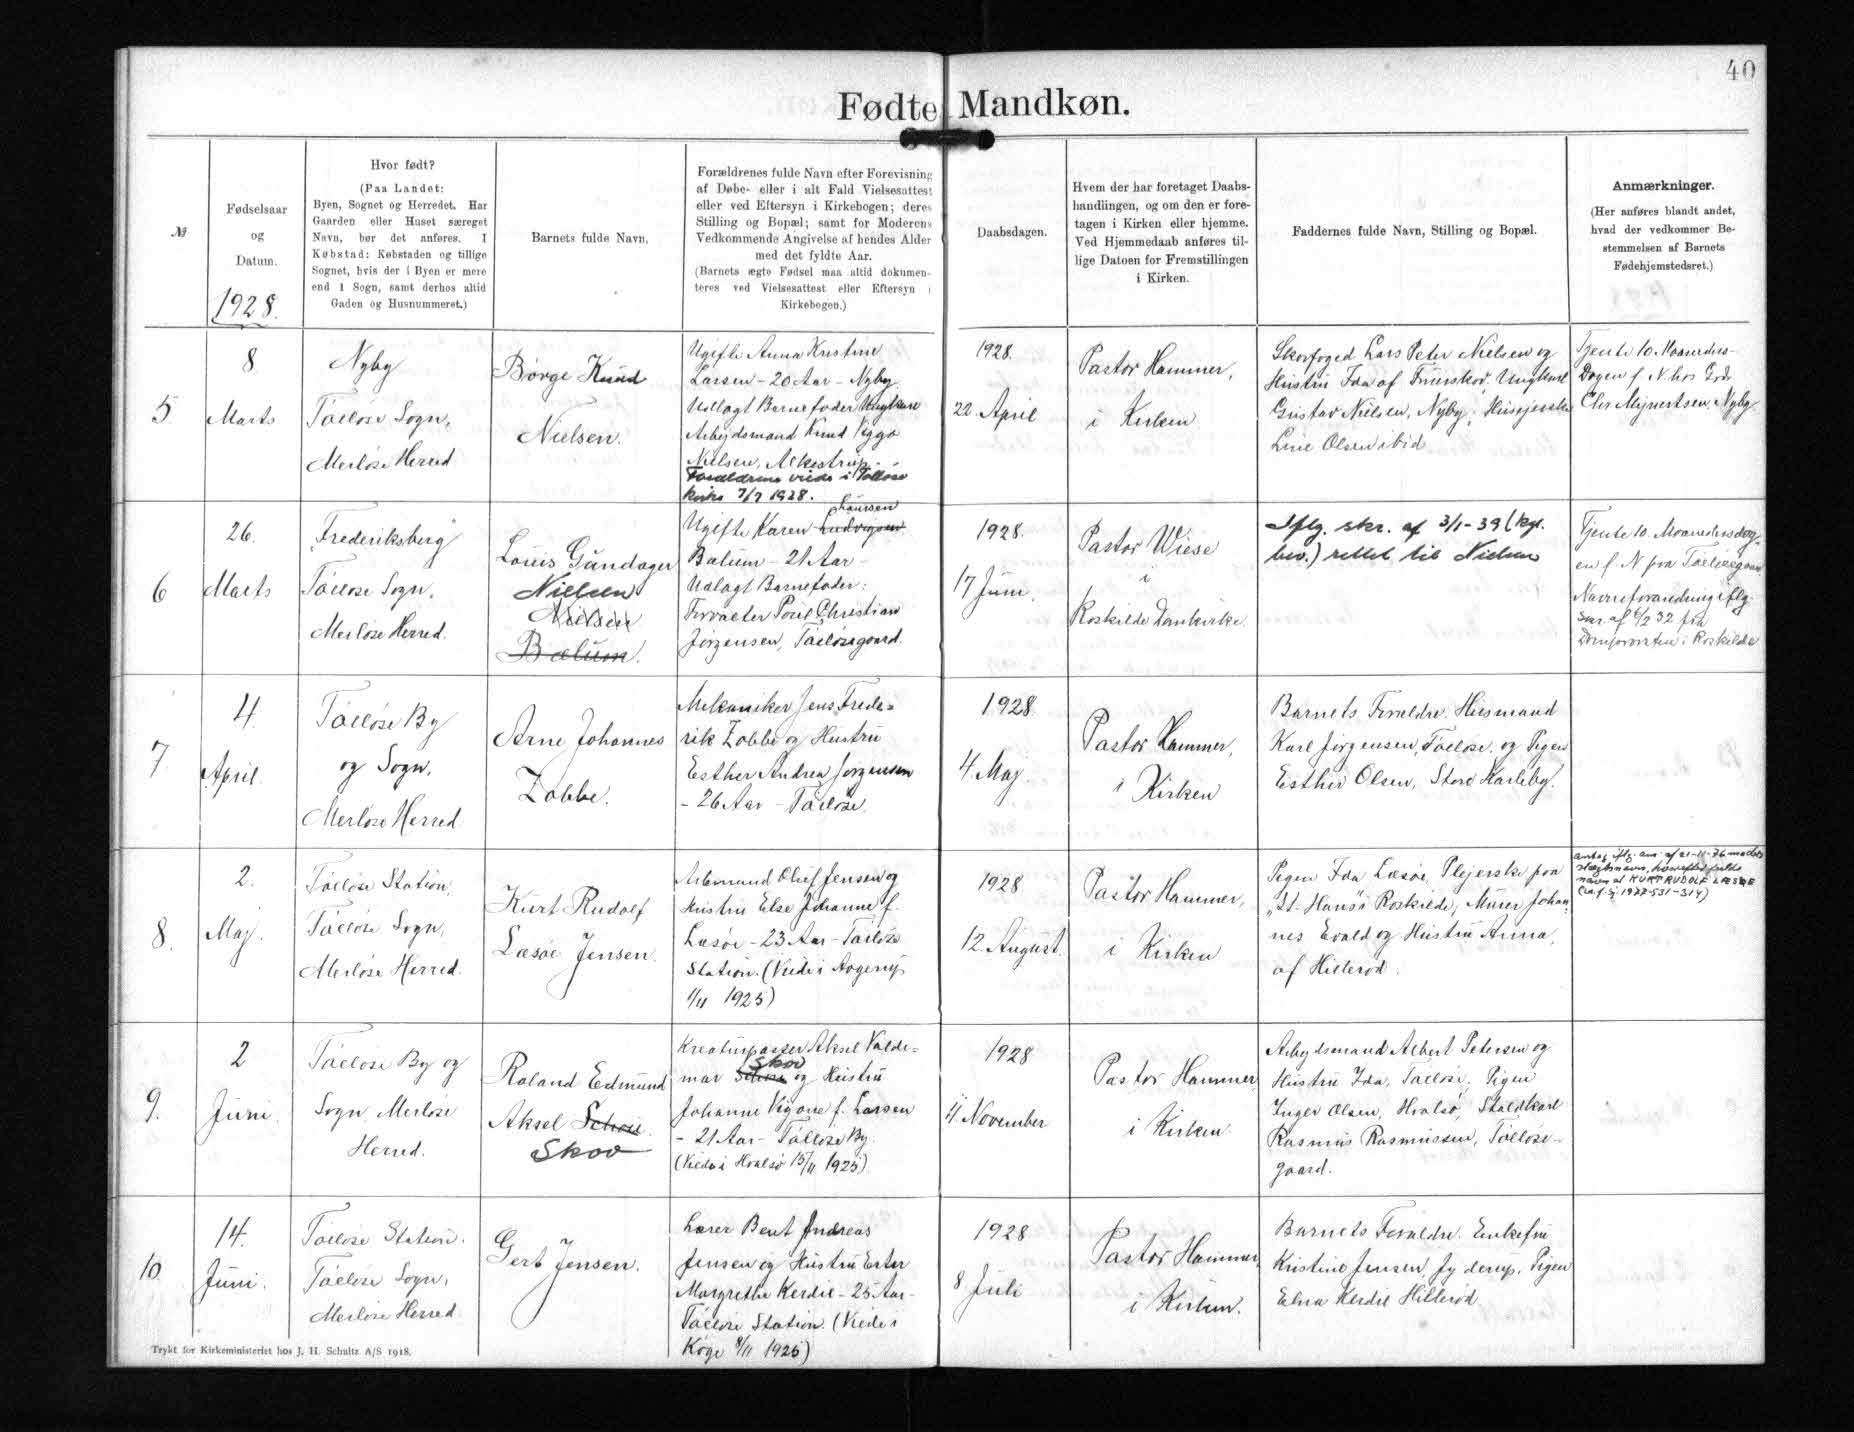 40
Fødte Mandkøn.
№
Fødselsaar
og
Datum.
1928.
Hvor født?
(Paa Landet:
Byen, Sognet og Herredet. Har
Gaarden eller Huset særeget
Navn, bør det anføres. I
Købstad: Købstaden og tillige
Sognet, hvis der i Byen er mere
end 1 Sogn, samt derhos altid
Gaden og Husnummeret.)
Barnets fulde Navn.
Forældrenes fulde Navn efter Forevisning
af Døbe- eller i alt Fald Vielsesattest
eller ved Eftersyn i Kirkebogen; deres
Stilling og Bopæl; samt for Moderens
Vedkommende Angivelse af hendes Alder
med det fyldte Aar.
(Barnets ægte Fødsel maa altid dokumen-
teres ved Vielsesattest eller Eftersyn i
Kirkebogen.)
Daabsdagen.
Hvem der har foretaget Daabs-
handlingen, og om den er fore-
tagen i Kirken eller hjemme.
Ved Hjemmedaab anføres til-
lige Datoen for Fremstillingen
i Kirken.
Faddernes fulde Navn, Stilling og Bopæl.
Anmærkninger.
(Her anføres blandt andet,
hvad der vedkommer Be-
stemmelsen af Barnets
Fødehjemstedsret.)
5
8.
Marts
Nyby
Tølløse Sogn,
Merløse Herred
Børge Knud
Nielsen.
Ugifte Anna Kristine
Larsen - 20 Aar - Nyby.
Udlagt Barnefader Ungkarl
Arbejdsmand Knud Viggo
Nielsen, Alkestrup.
Forældrene viede i Tølløse
Kirke 7/7 1928.
1928.
22 April
Pastor Hammer,
i Kirken
Skovfoged Lars Peter Nielsen og
Hustru Ida af Ungkarl
Gustav Nielsen, Nyby; Husejerske
Line Olsen ibid
Tjente 10. Maaneders-
Dagen f. N. hos Grdr.
Chr. Mejnertsen, Nyby
6
26.
Marts
Frederiksberg
Tølløse Sogn,
Merløse Herred.
Louis Gundager
Nielsen
Nielsen
Bælum.
Ugifte Karen Ludvigsen
Laursen
Bælum - 21 Aar -
Udlagt Barnefader:
Forvalter Poul Christian
Jørgensen, Tølløsegaard.
1928.
17 Juni
Pastor Wiese
i
Roskilde Domkirke
Iflg. skr. af 3/1-39 (kgl.
bev.) rettet til Nielsen
Tjente 10. Maanedersdag-
en f. N paa Tølløsegaard
Navneforandring iflg.
skr. af 6/2 32 fra
Domprovsten i Roskilde
7
4.
April.
Tølløse By
og Sogn,
Merløse Herred
Arne Johannes
Zobbe.
Mekaniker Jens Frede=
rik Zobbe og Hustru
Esther Andrea Jørgensen
- 26 Aar - Tølløse.
1928
4. Maj
Pastor Hammer,
i Kirken
Barnets Forældre. Husmand
Karl Jørgensen, Tølløse, og Pigen
Esther Olsen, Store Karleby.
8.
2.
Maj.
Tølløse Station,
Tølløse Sogn,
Merløse Herred.
Kurt Rudolf
Læsøe Jensen.
Arbmand Oluf Jensen og
Hustru Else Johanne f.
Læsøe - 23 Aar - Tølløse
Station. (Viede i
1/11 1925)
1928
12. August.
Pastor Hammer,
i Kirken
Pigen Ida Læsøe, Plejerske paa
"St. Hans" Roskilde, Murer Johan
nes Evald og Hustru Anna,
af Hillerød.
antog iflg. anm. af 21-11-76 moders
slægtsnavn, herefter fulde
navn at KURT RUDOLF LÆSØE
(sa.f.j. 1977-531-314)
9.
2
Juni.
Tølløse By og
Sogn, Merløse
Herred.
Roland Edmund
Aksel Schou.
Skov
Kreaturpasser Aksel Valde=
Skov
mar Schou og Hustru
Johanne Vigone f. Larsen
- 21 Aar - Tølløse By.
(Viede i Hvalsø 15/11 1925)
1928
11. November
Pastor Hammer,
i Kirken
Arbejdsmand Albert Petersen og
Hustru Ida, Tølløse, Pigen
Inger Olsen, Hvalsø, Staldkarl
Rasmus Rasmussen, Tølløse-
gaard.
10
14.
Juni.
Tølløse Station.
Tølløse Sogn,
Merløse Herred.
Gert Jensen.
Lærer Bent Andreas
Jensen og Hustru Ester
Margrethe Kerdil - 25 Aar -
Tølløse Station. (Viede i
Køge 1/11 1925)
1928
8 Juli
Pastor Hammer,
i Kirken.
Barnets Forældre. Enkefru
Kristine Jensen, Jyderup. Pigen
Elna Kerdil Hillerød.
Trykt for Kirkeministeriet hos J. H. Schultz A/S 1918.